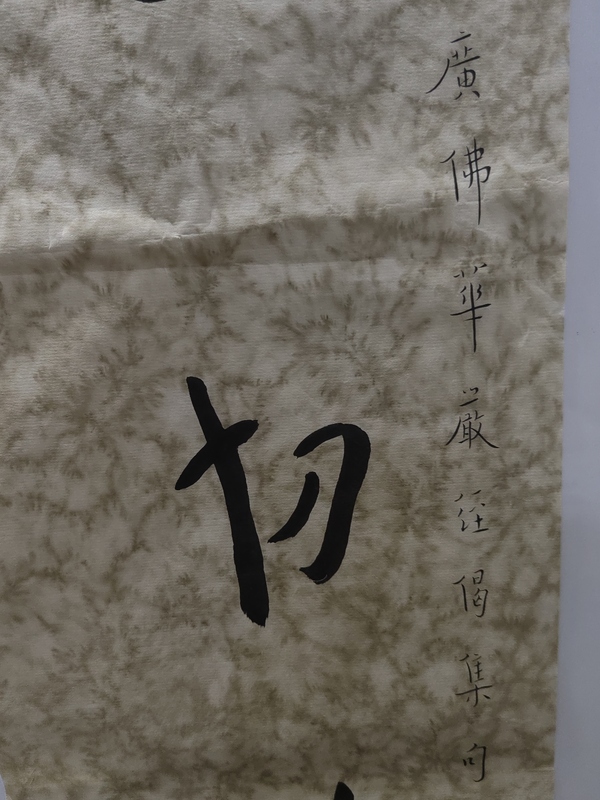 廣佛華嚴經偈集句
切